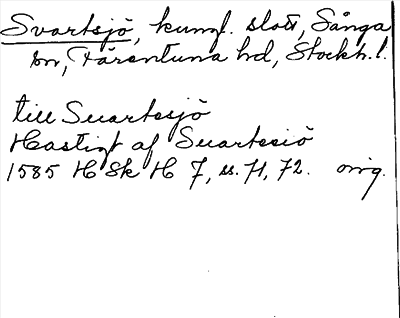 Svartsjö, kungl. slott, Sånga
sn, Färentuna hd, Stockh. l.
till Suartesjö
Hastigt af Suartesiö
1585 H Sk H 7, s. 71, 72. orig.